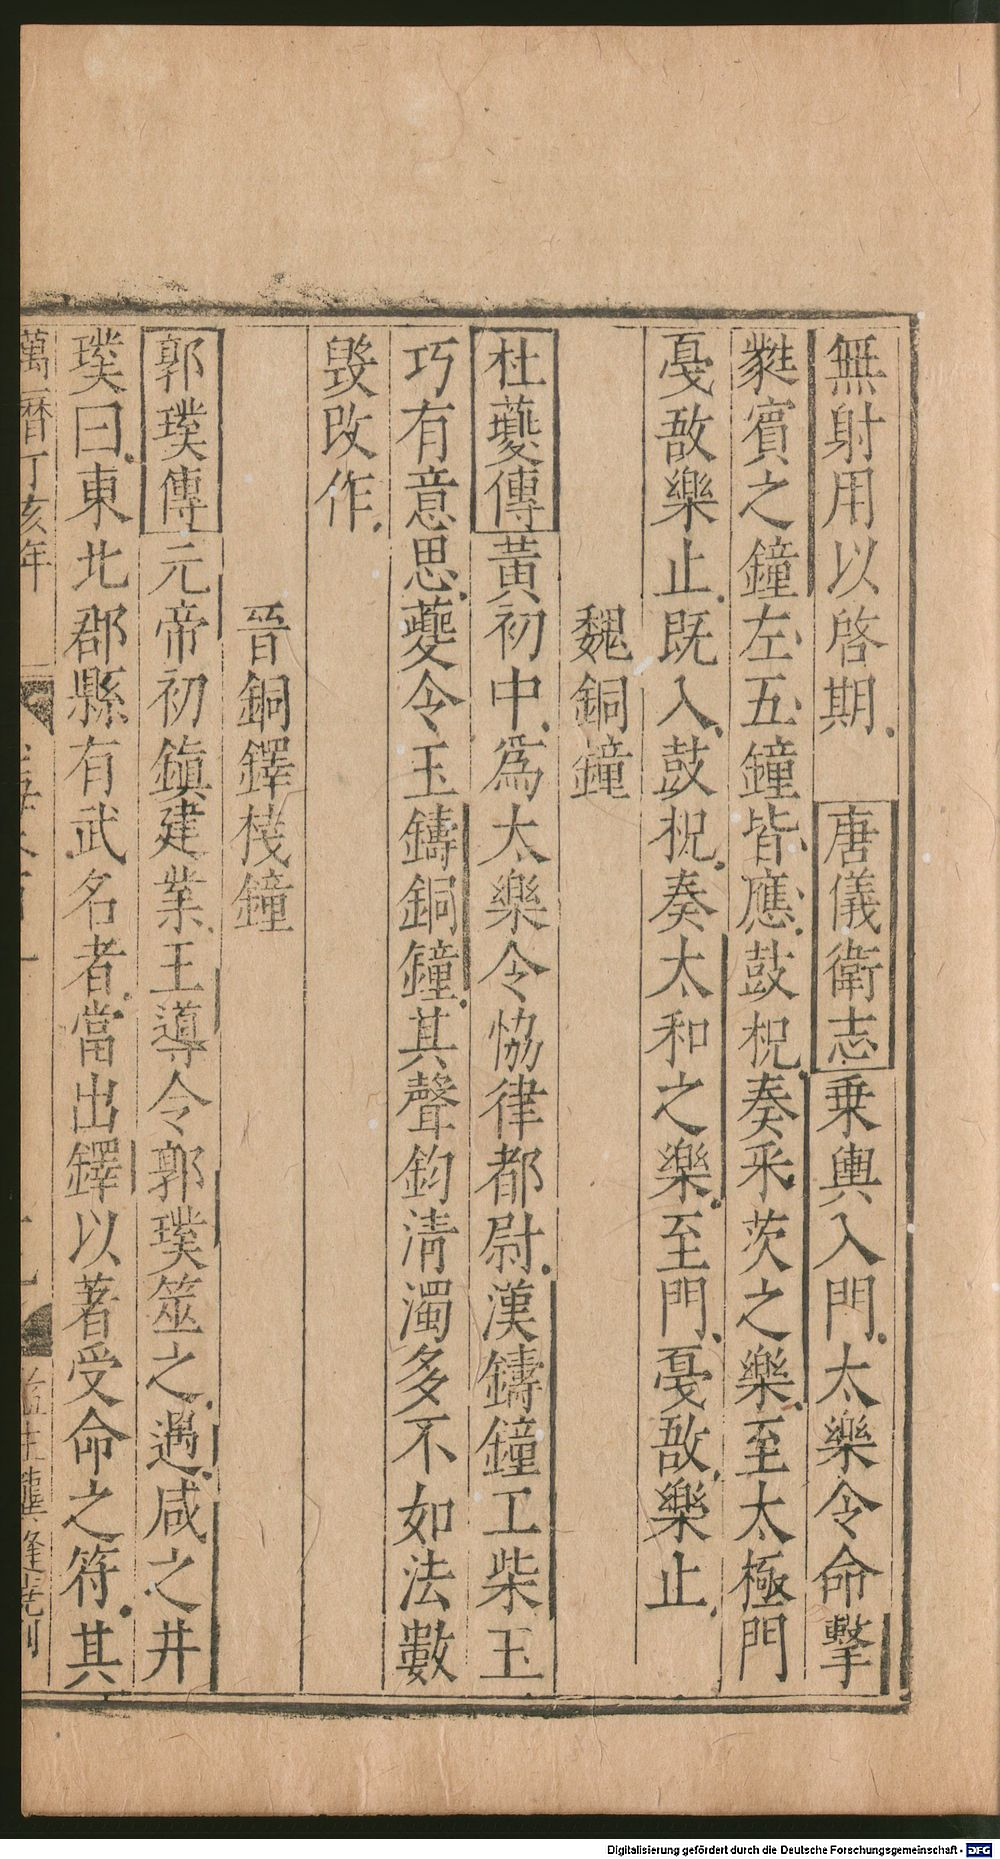 無射用以啓期　唐儀衛志乗輿入門太樂令命擊
蕤賓之鐘左五鐘皆應鼓柷奏采茨之樂至太極門
戞敔樂止既入鼓柷奏太和之樂至門戞敔樂止
魏銅鐘
杜蘷傳黃初中爲太樂令恊律都尉漢鑄鐘工柴玉
巧有意思蘷令玉鑄銅鐘其聲鈞淸濁多不如法數
毀改作
晉銅鐸棧鐘
郭璞傳元帝初鎭建業王導令郭璞筮之遇咸之井
璞曰東北郡縣有武名者當出鐸以著受命之符其
萬曆丁亥年
Digitalisierung gefördert durch die Deutsche Forschungsgemeinschaft - DFG